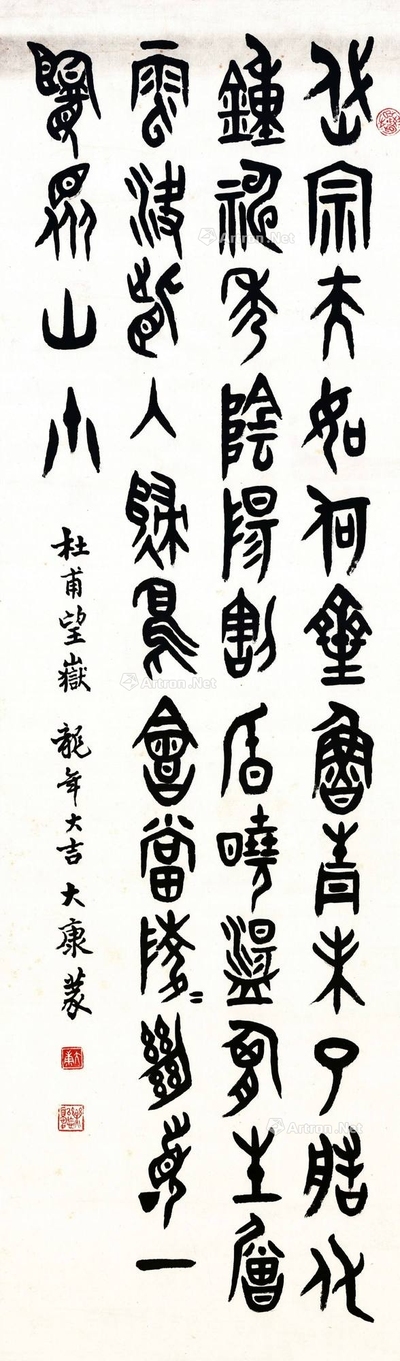 岱宗夫如何齊魯青未了造化
鍾神秀陰陽割昏曉盪胸生層
雲決眥入歸鳥會當陵絕頂一
覽眾山小
杜甫望嶽 龍年大吉 大康篆
Artron.Net
Artron.Net
Artron.Net